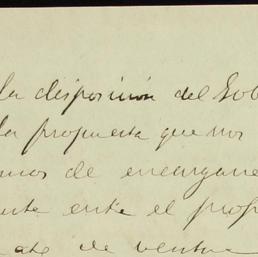 la disposición del Gob
la propuesta que nos
mos de encargane
ente el prop
de venta